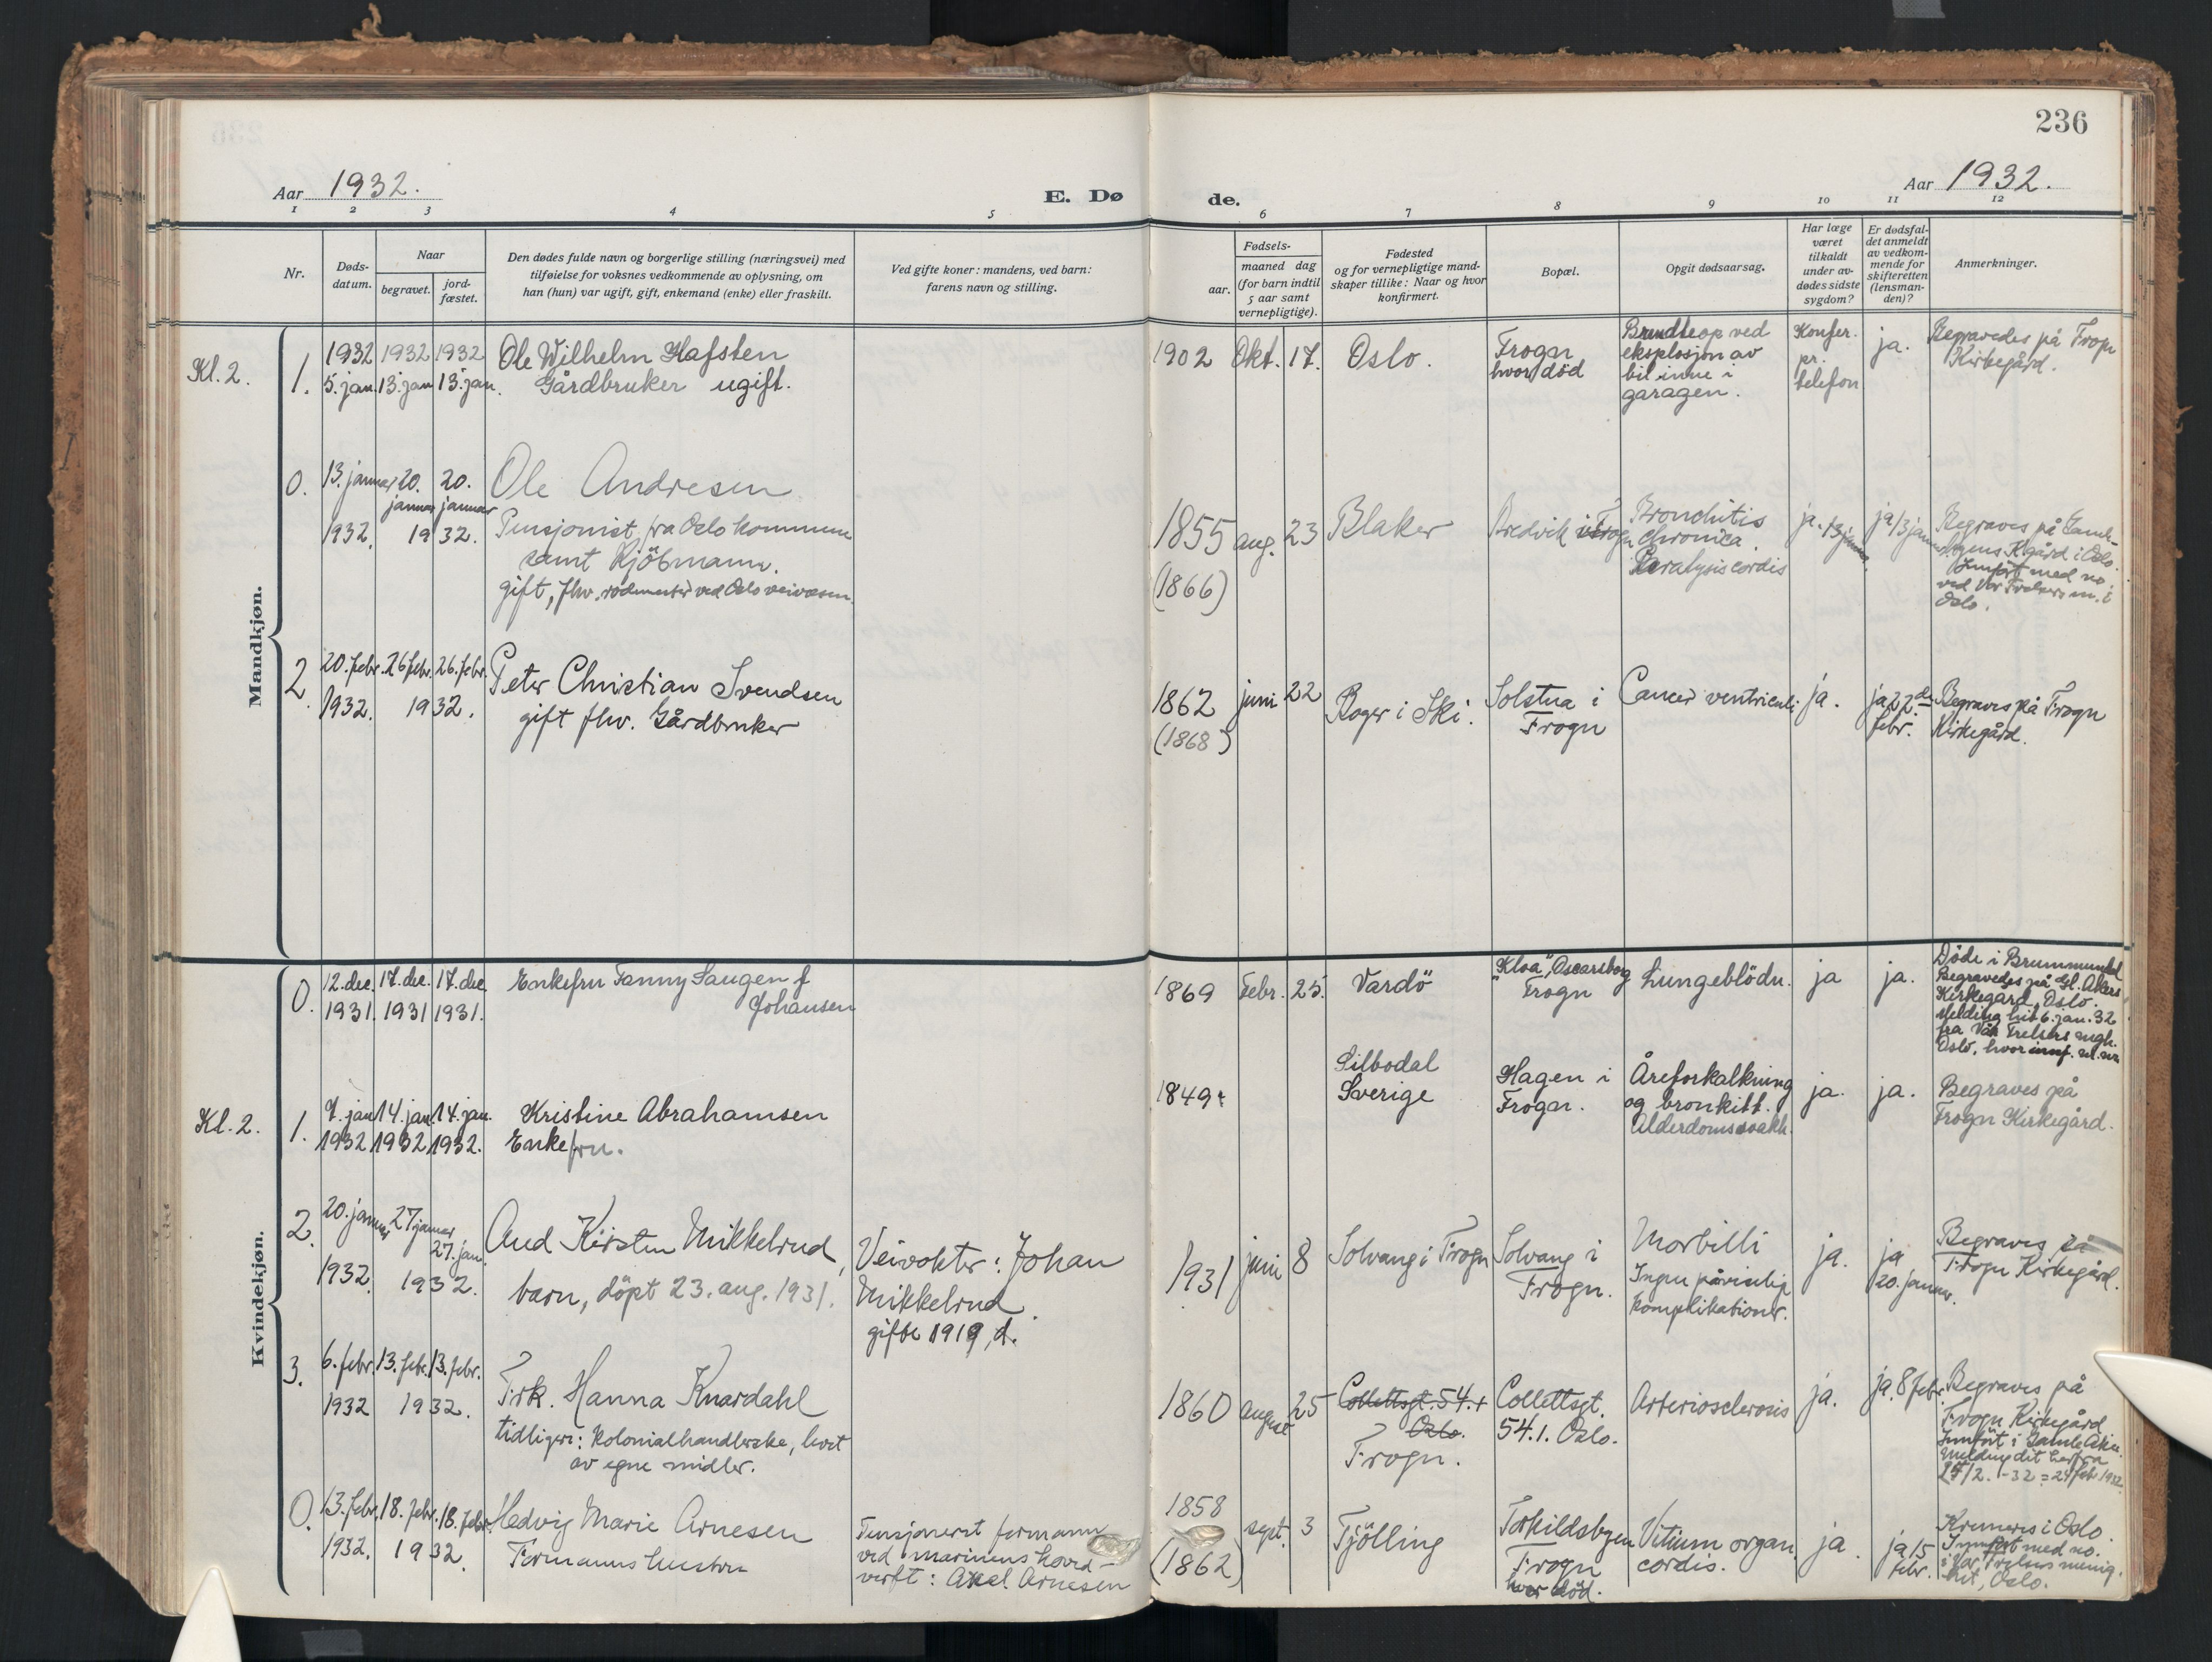 236
Aar 1932.
E. Døde.
Aar 1932.
1 2 3 4 5 6 7 8 9 10 11 12
Nr.
Døds-
datum.
Naar
begravet.
jord-
fæstet.
Den dødes fulde navn og borgerlige stilling (næringsvei) med
tilføielse for voksnes vedkommende av oplysning, om
han (hun) var ugift, gift, enkemand (enke) eller fraskilt.
Ved gifte koner: mandens, ved barn:
farens navn og stilling.
Fødsels-
aar.
maaned dag
(for barn indtil
5 aar samt
vernepligtige).
Fødested
og for vernepligtige mand-
skaper tillike: Naar og hvor
konfirmert.
Bopæl.
Opgit dødsaarsag.
Har læge
været
tilkaldt
under av-
dødes sidste
sygdom?
Er dødsfal-
det anmeldt
av vedkom-
mende for
skifteretten
(lensman-
den)?
Anmerkninger.
Mandkjøn.
Kl. 2.
1.
1932 1932 1932
5. jan. 13. jan 13. jan.
Ole Wilhelm Hafsten
Gårdbruker ugift.
1902 Okt. 17.
Oslo.
Frogn
hvor död
Brændte op ved
eksplosjon av
bil inne i
garagen.
Konfer.
pr.
telefon
ja.
Begravedes på Frogn
Kirkegård.
0.
13. januar 20. 20.
januar januar
1932. 1932.
Ole Andresen
Pensjonist fra Oslo kommune
samt Kjöbmann.
gift, fhv. rodemester ved Oslo veivæsen.
1855 aug. 23
(1866)
Blaker
Bredvik i Frogn
Bronchitis
chronica.
Paralysis cordis
ja. 13 januar
ja 13 januar
Begraves på Gamle-
byens K.gård i Oslo.
Innfört med no.
ved Vor Frelsers m. i
Oslo.
2
20. febr. 26 febr. 26. febr.
1932. 1932.
Peter Christian Svendsen
gift fhv. Gårdbruker
1862 juni 22
(1868)
Roger i Ski.
Solstua i
Frogn
Cancer ventriculi
ja.
ja 22. de
febr.
Begraves på Frogn
Kirkegård.
Kvindekjøn.
0.
12. dec. 17. dec. 17. dec.
1931. 1931 1931.
Enkefru Fanny Saugen f
Johansen
1869 Febr. 25.
Vardö
"Kloa", Oscarsborg
Frogn
Lungeblödn.
ja
ja.
Döde i Brummundal
Begravedes på Gl. Akers
Kirkegård, Oslo.
Melding hit 6. jan. 32
fra Vår Frelsers mgh.
Oslo, hvor innf. m. nr
Kl. 2.
1.
7. jan 14. jan 14. jan.
1932 1932 1932.
Kristine Abrahamsen
Enkefru.
1849.
Silbodal
Sverige
Hagen i
Frogn.
Åreforkalkning
og bronkitt.
Alderdomssvakh.
ja.
ja.
Begraves på
Frogn Kirkegård.
2.
20. januar 27 januar
27. jan.
1932. 1932.
Aud Kirsten Mikkelrud,
barn, döpt 23. aug. 1931.
Veivokter: Johan
Mikkelrud
gifte 1919, d.
1931 juni 8
Solvang i Frogn
Solvang i
Frogn.
Morbilli
Ingen påviselig
komplikationer.
ja.
ja
20. januar.
Begraves på
Frogn Kirkegård.
3.
6. febr. 13. febr. 13. febr.
1932 1932.
Frk. Hanna Knardahl
tidligere: Kolonialhandlerske, levet
av egne midler.
1860 august 25
Collettsgt. 54.1
Oslo.
Frogn.
Collettsgt.
54.1. Oslo.
Arteriosclerosis
ja.
ja. 8 febr.
Begraves på
Frogn Kirkegård
Innfört i Gamle Aker.
Melding dit herfra
24/2. -32 = 24 febr 1932.
0.
13. febr. 18. febr. 18. febr.
1932. 1932.
Hedvig Marie Arnesen
Formanns hustru
Pensjonert formann
ved marinens hoved-
verft: Axel Arnesen
1858 sept. 3
(1862)
Tjölling
Torkildsbyen
Frogn
hvor död.
Vitium organ.
cordis.
ja.
ja 15
febr.
Kremeres i Oslo
Innfört med no.
i Vor Frelsers menig-
het, Oslo.